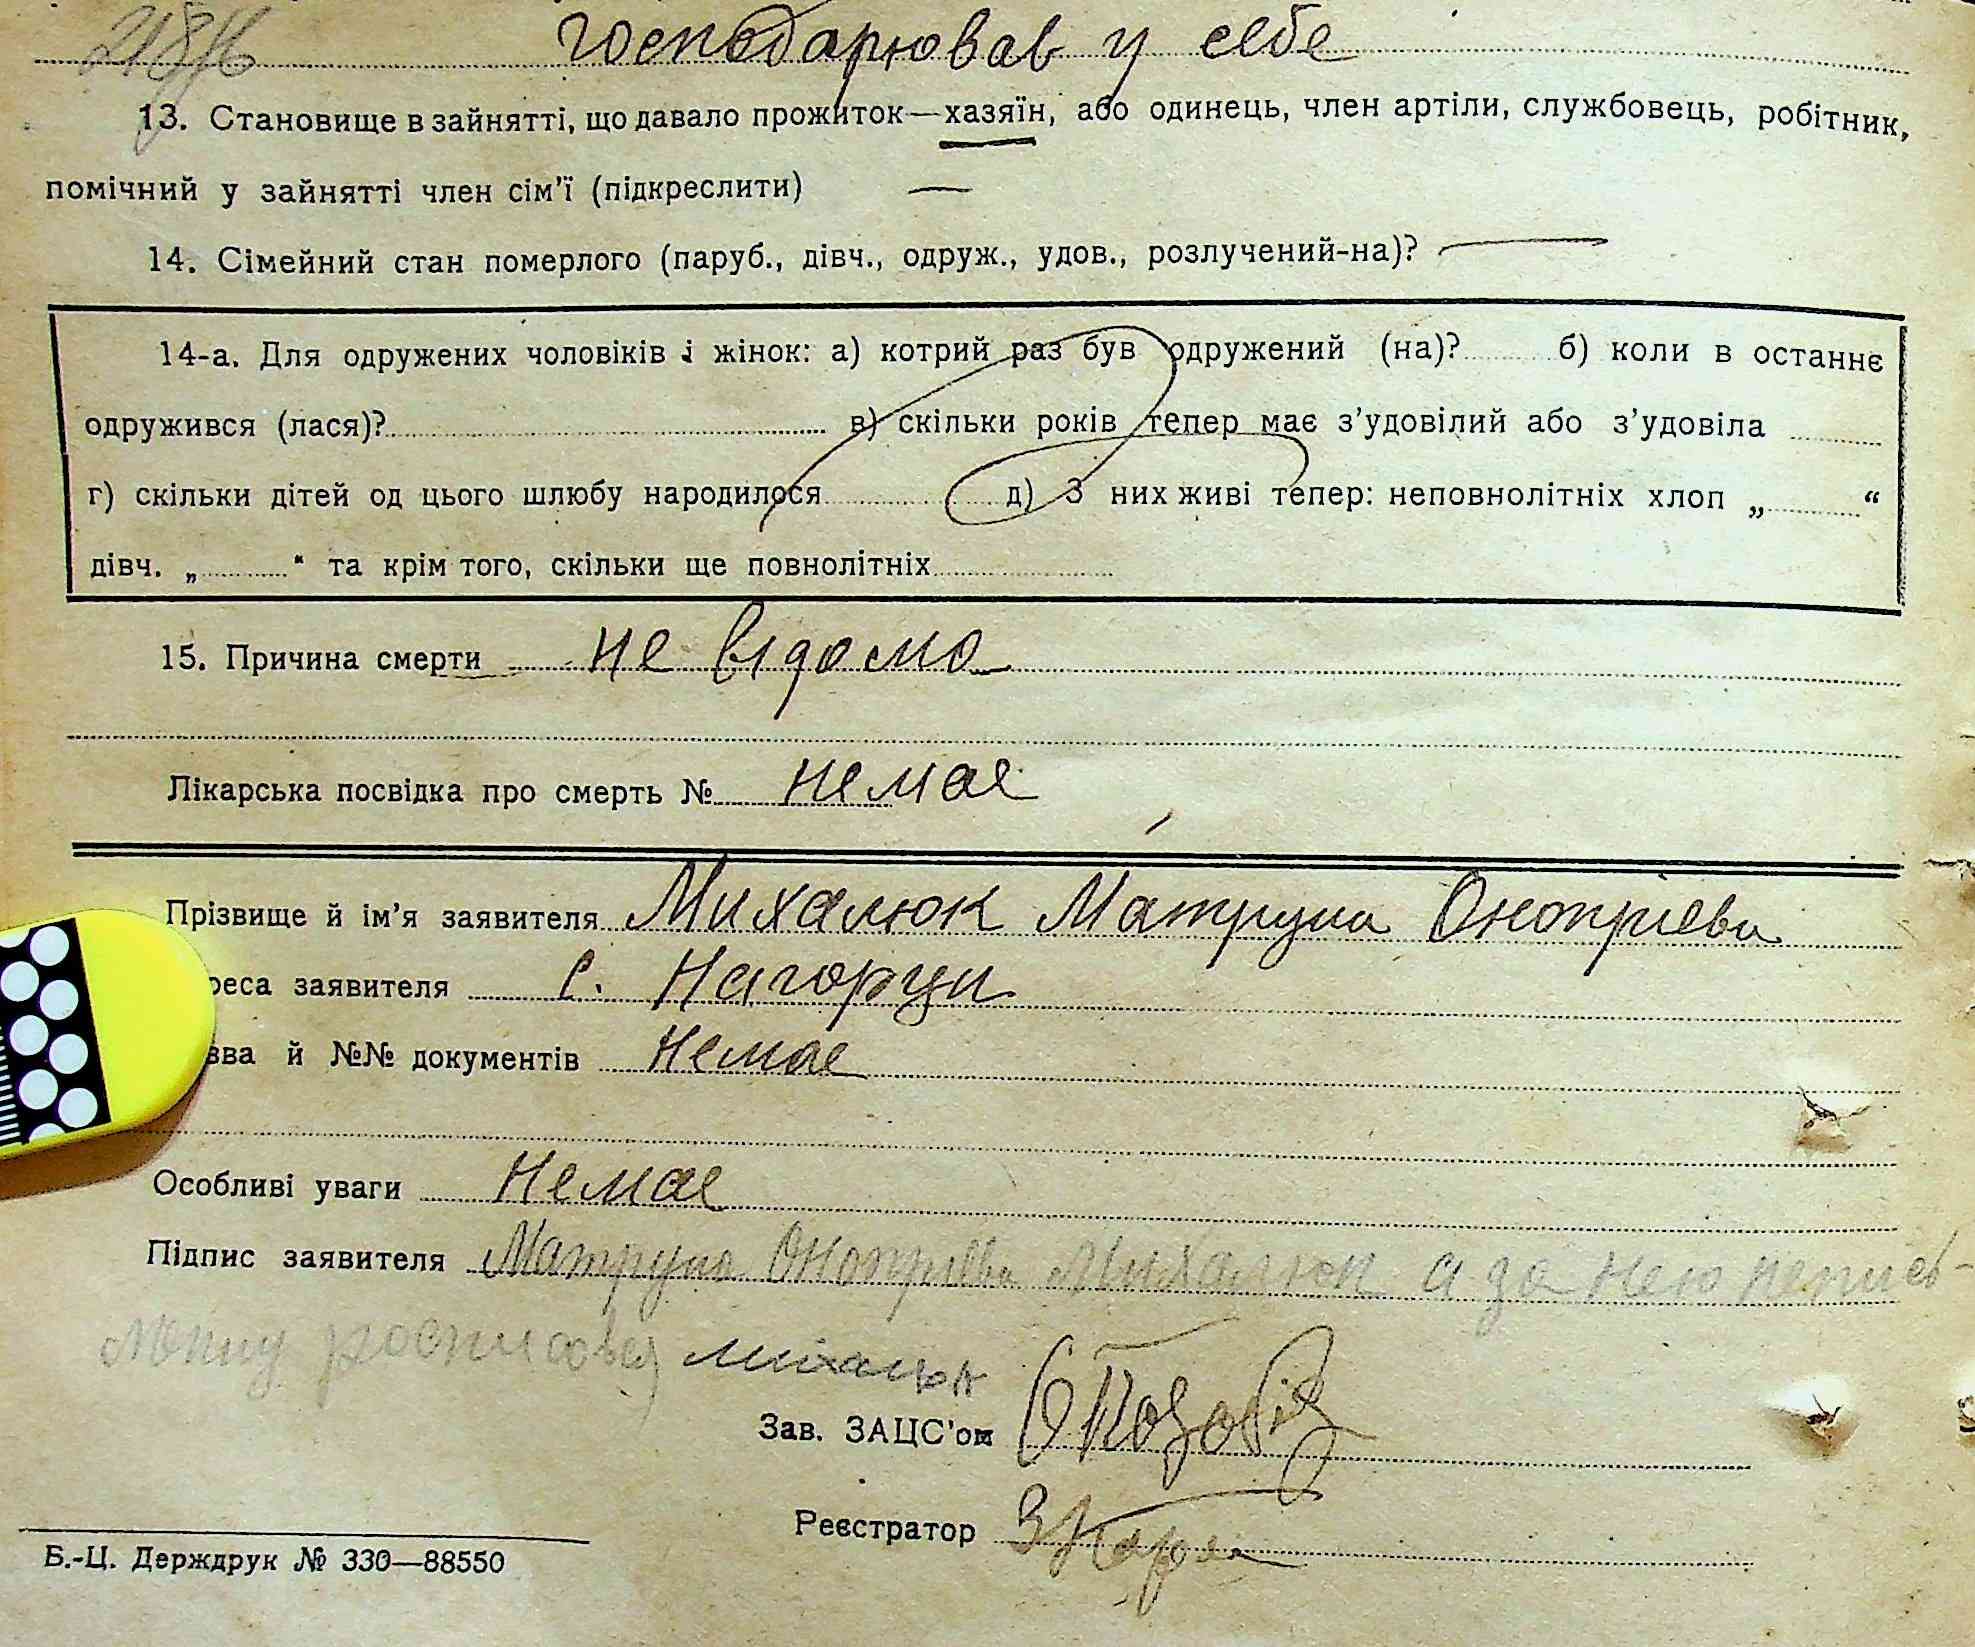 господарював у себе
13. Становище в зайнятті, що давало прожиток—хазяїн, або одинець, член артіли, службовець, робітник,
помічний у зайнятті член сім'ї (підкреслити) —
14. Сімейний стан померлого (паруб., дівч., одруж., удов., розлучений-на)? —
14-а. Для одружених чоловіків і жінок: а) котрий раз був одружений (на)?........ б) коли в останнє
одружився (лася)?........ в) скільки років тепер має з'удовілий або з'удовіла ........
г) скільки дітей од цього шлюбу народилося........ д) З них живі тепер: неповнолітніх хлоп „........“
дівч. „........“ та крім того, скільки ще повнолітніх........
15. Причина смерти не відомо
Лікарська посвідка про смерть № немає
Прізвище й ім'я заявителя Михалюк Матруна Онопрієва
реса заявителя с. Нагорци
зва й №№ документів немає
Особливі уваги немає
Підпис заявителя Матруна Онопрієва Михалюк а за нею непись-
менну росписався Михалюк
Зав. ЗАЦС'ом
Реєстратор
Б.-Ц. Держдрук № 330—88550